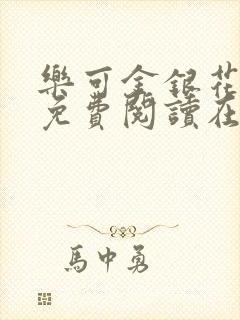 樂可金銀花
免費閱讀在
馬中勇